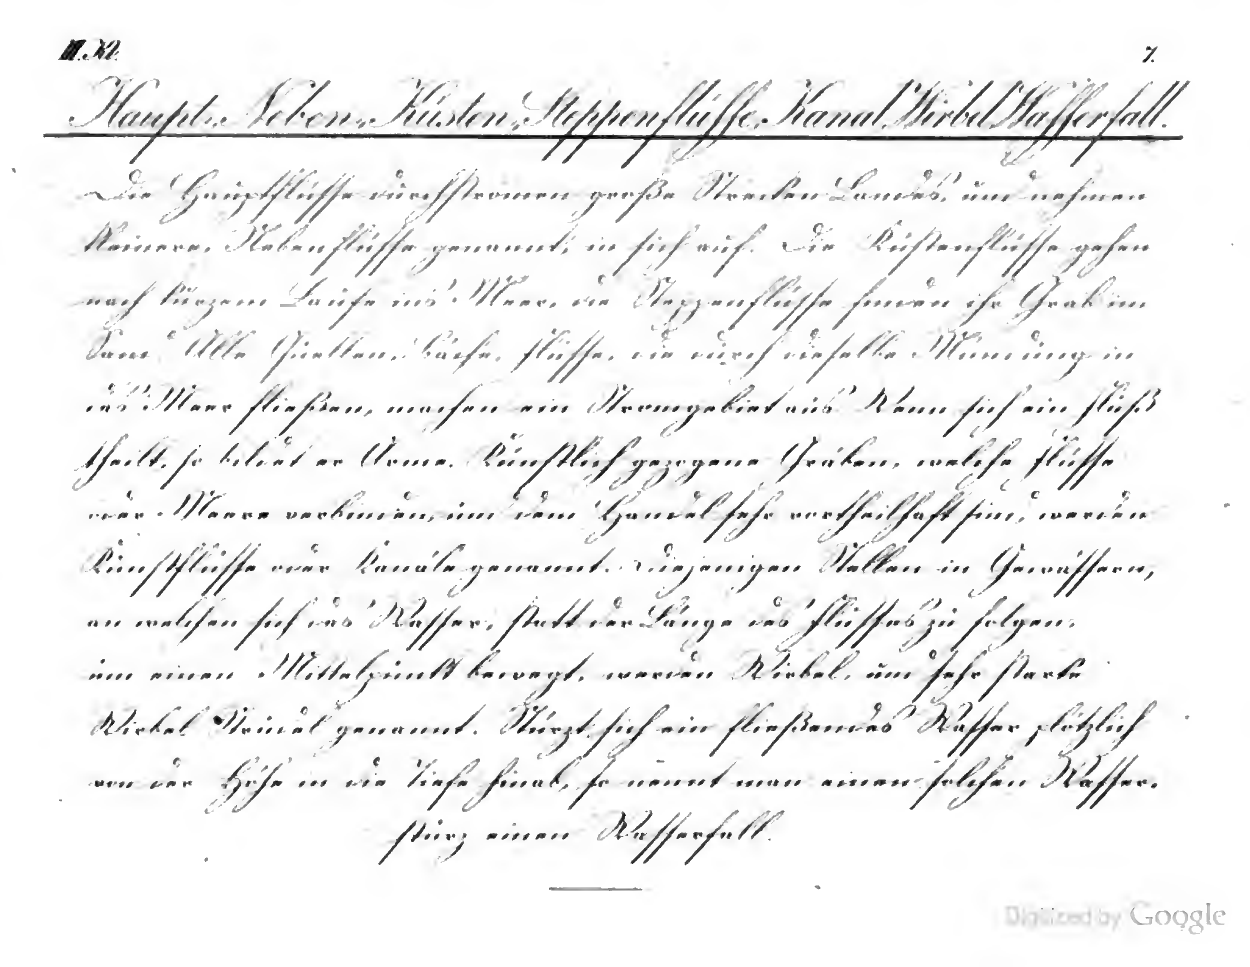 III. Kl. 7.
Haupt-, Neben-, Küsten-, Steppenflüsse, Kanal, Wirbel, Wasserfall.
Die Hauptflüsse durchströmen große Strecken Landes, und nehmen
kleinere, Nebenflüsse genannt, in sich auf. Die Küstenflüsse gehen
nach kurzem Laufe ins Meer, die Steppenflüsse finden ihr Grab im
Sand. Alle Quellen, Bäche, Flüsse, die durch dieselbe Mündung in
das Meer fließen, machen ein Stromgebiet aus. Wenn sich ein Fluß
theilt, so bildet er Arme. Künstlich gezogene Gräben, welche Flüsse
oder Meere verbinden, und dem Handel sehr vortheilhaft sind, werden
Kunstflüsse oder Kanäle genannt. Diejenigen Stellen in Gewässern,
an welchen sich das Wasser, statt der Länge des Flusses zu folgen,
um einen Mittelpunkt bewegt, werden Wirbel, und sehr starke
Wirbel Strudel genannt. Stürzt sich ein fließendes Wasser plötzlich
von der Höhe in die Tiefe hinab, so nennt man einen solchen Wasser-
sturz einen Wasserfall.
Digitized by Google